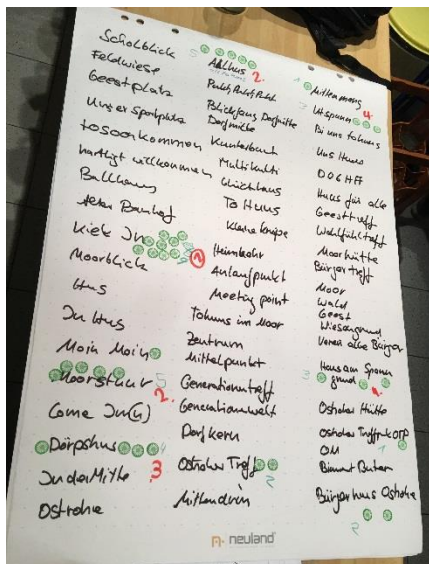 Scholblick
Feldwiese
Geestplatz
Unser Sportplatz
tosoomkommen
hartligt willkommen
Ballhaus
Alter Bahnhof
Kiek In
Moorblick
Hus
In Hus
Moin Moin
Moorstuuv
Come In(n)
Dörpshus
In der Mitte 3
Ostrohe
5
All hus 2.
Dorfmitte
Kunterbunt
Multikulti
Glückhaus
To Huus
Kleine Kneipe
2
Heimkehr
Anlaufpunkt
Meeting point
Tohuus im Moor
Zentrum
Mittelpunkt
Generationentreff
Generationenwelt
Dorfkern
Ostroher Treff
2
Mittendrin
1
Mittenmang
Utspann 4.
Bi uns tohuus
Uns Huus
DOGHFF
Huus für alle
Geesttreff
Wohlfühltreff
Moorhütte
Bürgertreff
Moor
Wald
Geest
Wiesengrund
Verein alle Bürger
Haus am Spann
grund
Ostroher Hütte
Ostroher Treffpunkt
OM
Binnen Buten
Bürgerhuus Ostrohe
2
neuland